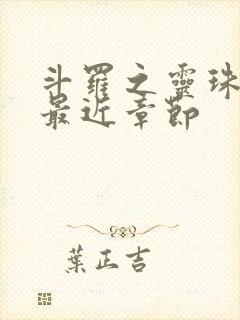 斗羅之靈珠
最近章節
葉正吉